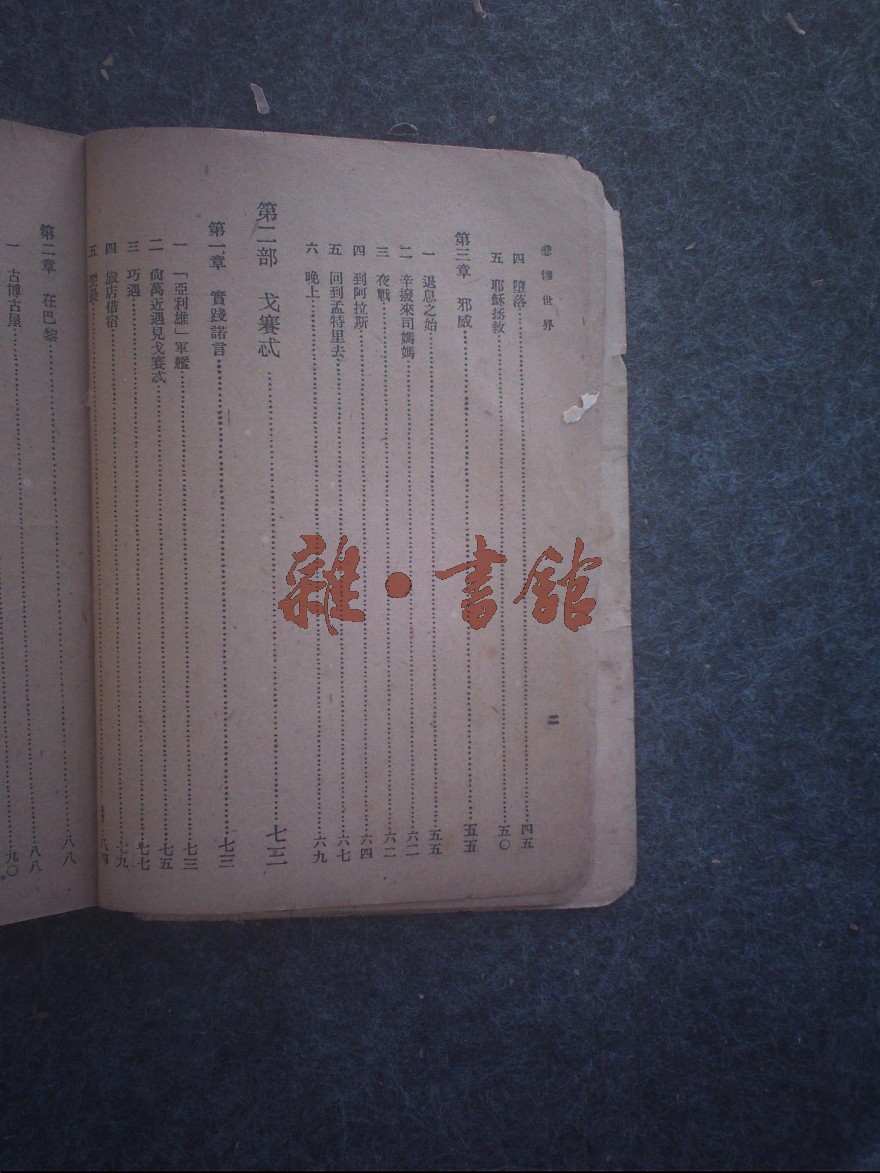 悲慘世界
四 墮落 四五
五 耶穌拯救 五〇
第三章 邪威 五五
一 退息之始 五五
二 辛廢來司媽媽 六二
三 夜戰 六二
四 到阿拉斯 六四
五 回到孟特里去 六七
六 晚上 六九
第二部 戈賽忒 七三
第一章 實踐諾言 七三
一 「亞利雄」軍艦 七三
二 尙萬近遇見戈賽忒 七五
三 巧遇 七七
四 旅店借宿 七九
五 八四
二
第二章 在巴黎 八八
八八
一 古博古屋 九〇
雜·書館